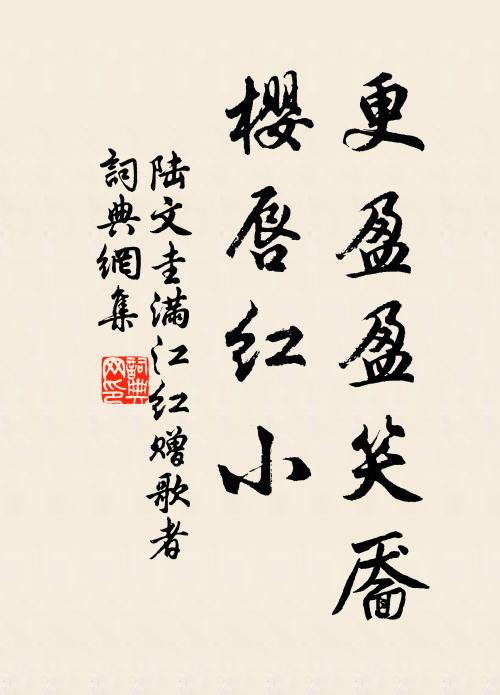 更盈盈笑靥
櫻唇红小
陆文圭满江红赠歌者
詞典網集
詞典网印